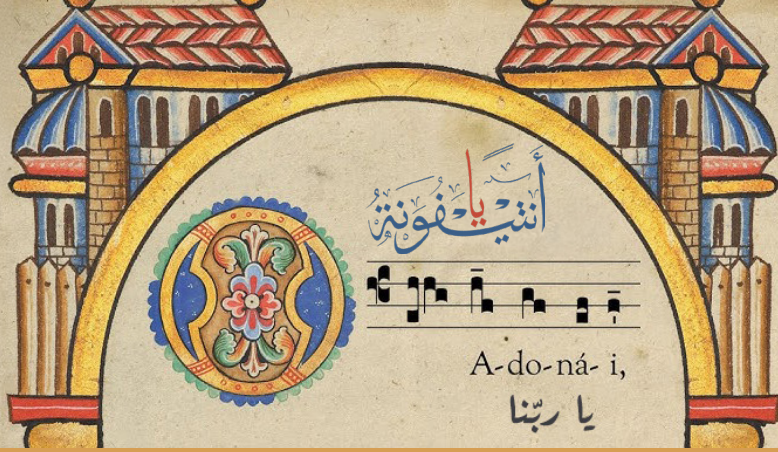 أنتيفونة يا
O A-do-ná- i,
يا ربّنا